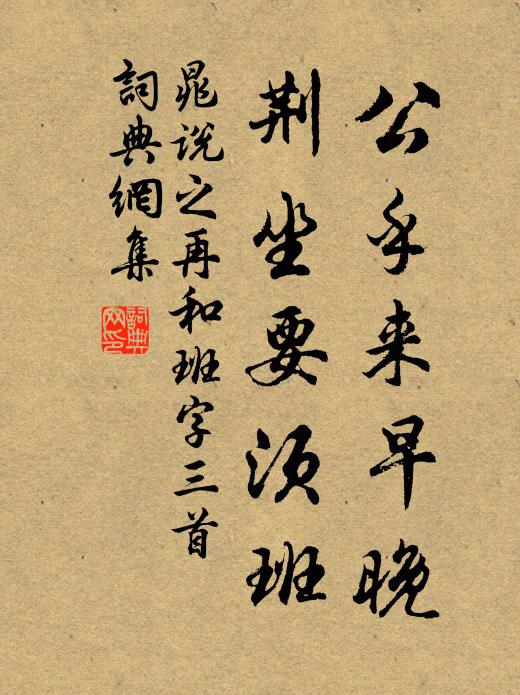 公乎来早晚
荆坐要须班
晁说之再和班字三首
詞典網集
詞典網印